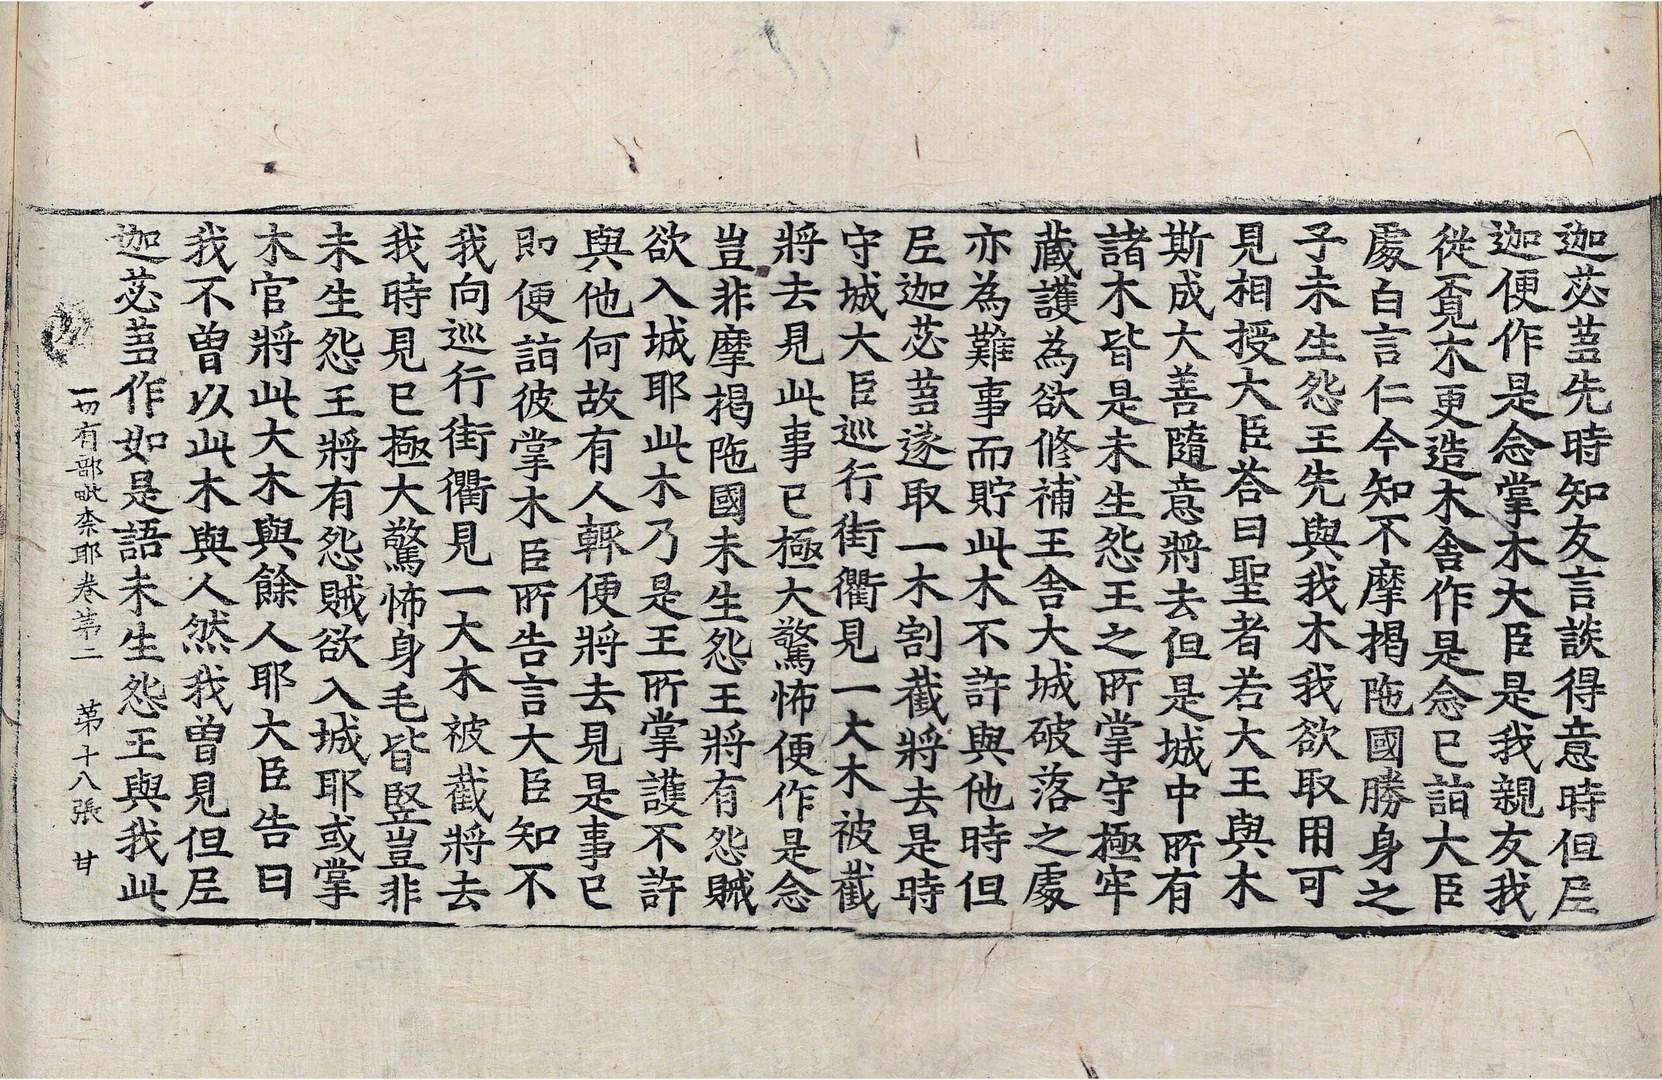 迦苾蒭先時知友言談得意時但𡰱
迦便作是念掌木大臣是我親友我
從覔木更造木舍作是念已詣大臣
處白言仁今知不摩揭陁國勝身之
子未生怨王先與我木我欲取用可
見相授大臣荅曰聖者若大王與木
斯成大善隨意將去但是城中所有
諸木皆是未生怨王之所掌守極牢
藏護為欲修補王舍大城破落之處
亦為難事而貯此木不許與他時但
𡰱迦苾蒭遂取一木割截將去是時
守城大臣巡行街衢見一大木被截
將去見此事已極大驚怖便作是念
豈非摩揭陁國未生怨王將有怨賊
欲入城耶此木乃是王所掌護不許
與他何故有人輙便將去見是事已
即便詣彼掌木臣所告言大臣知不
我向巡行街衢見一大木被截將去
我時見已極大驚怖身毛皆竪豈非
未生怨王將有怨賊欲入城耶或掌
木官將此大木與餘人耶大臣告曰
我不曾以此木與人然我曾見但𡰱
迦苾蒭作如是語未生怨王與我此
一切有部毗奈耶卷第二 第十八張 甘